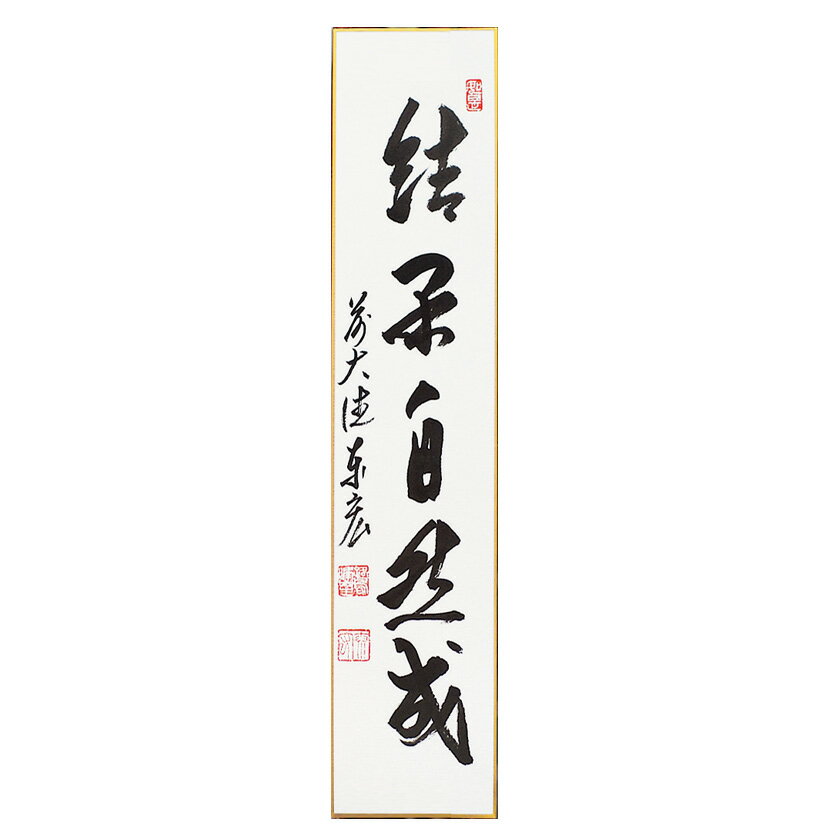 結果自然成
前大徳東宏